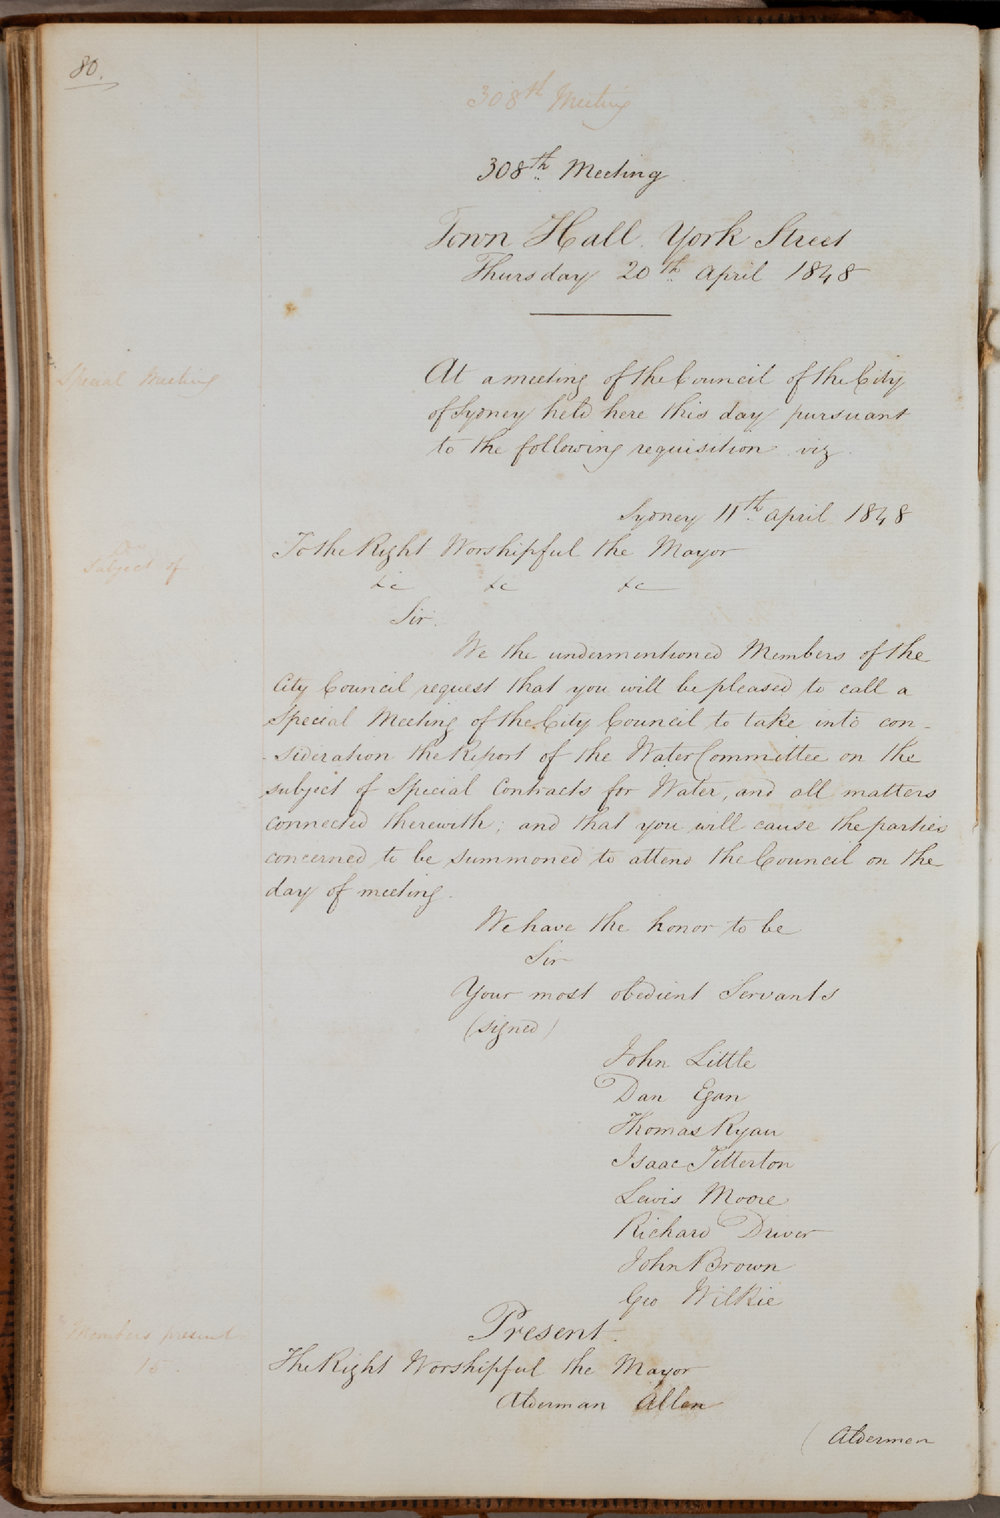 80.
308th Meeting
308th Meeting
Town Hall. York Street
Thursday 20th April 1848
Special Meeting
At a meeting of the Council of the City
of Sydney held here this day pursuant
to the following requisition viz
Sydney 11th April 1848
To the Right Worshipful the Mayor
&c &c &c
Subject of
Sir.
We the undermentioned Members of the
City Council request that you will be pleased to call a
Special Meeting of the City Council to take into con-
-sideration the Report of the Water Committee on the
subject of Special Contracts for Water, and all matters
connected therewith; and that you will cause the parties
concerned to be summoned to attend the Council on the
day of meeting.
We have the honor to be
Sir
Your most obedient Servants
(signed)
John Little
Dan Egan
Thomas Ryan
Isaac Titterton
Lewis Moore
Richard Driver
John Brown
Geo Wilkie
Present.
Members present
The Right Worshipful the Mayor
Alderman Allen
(Aldermen